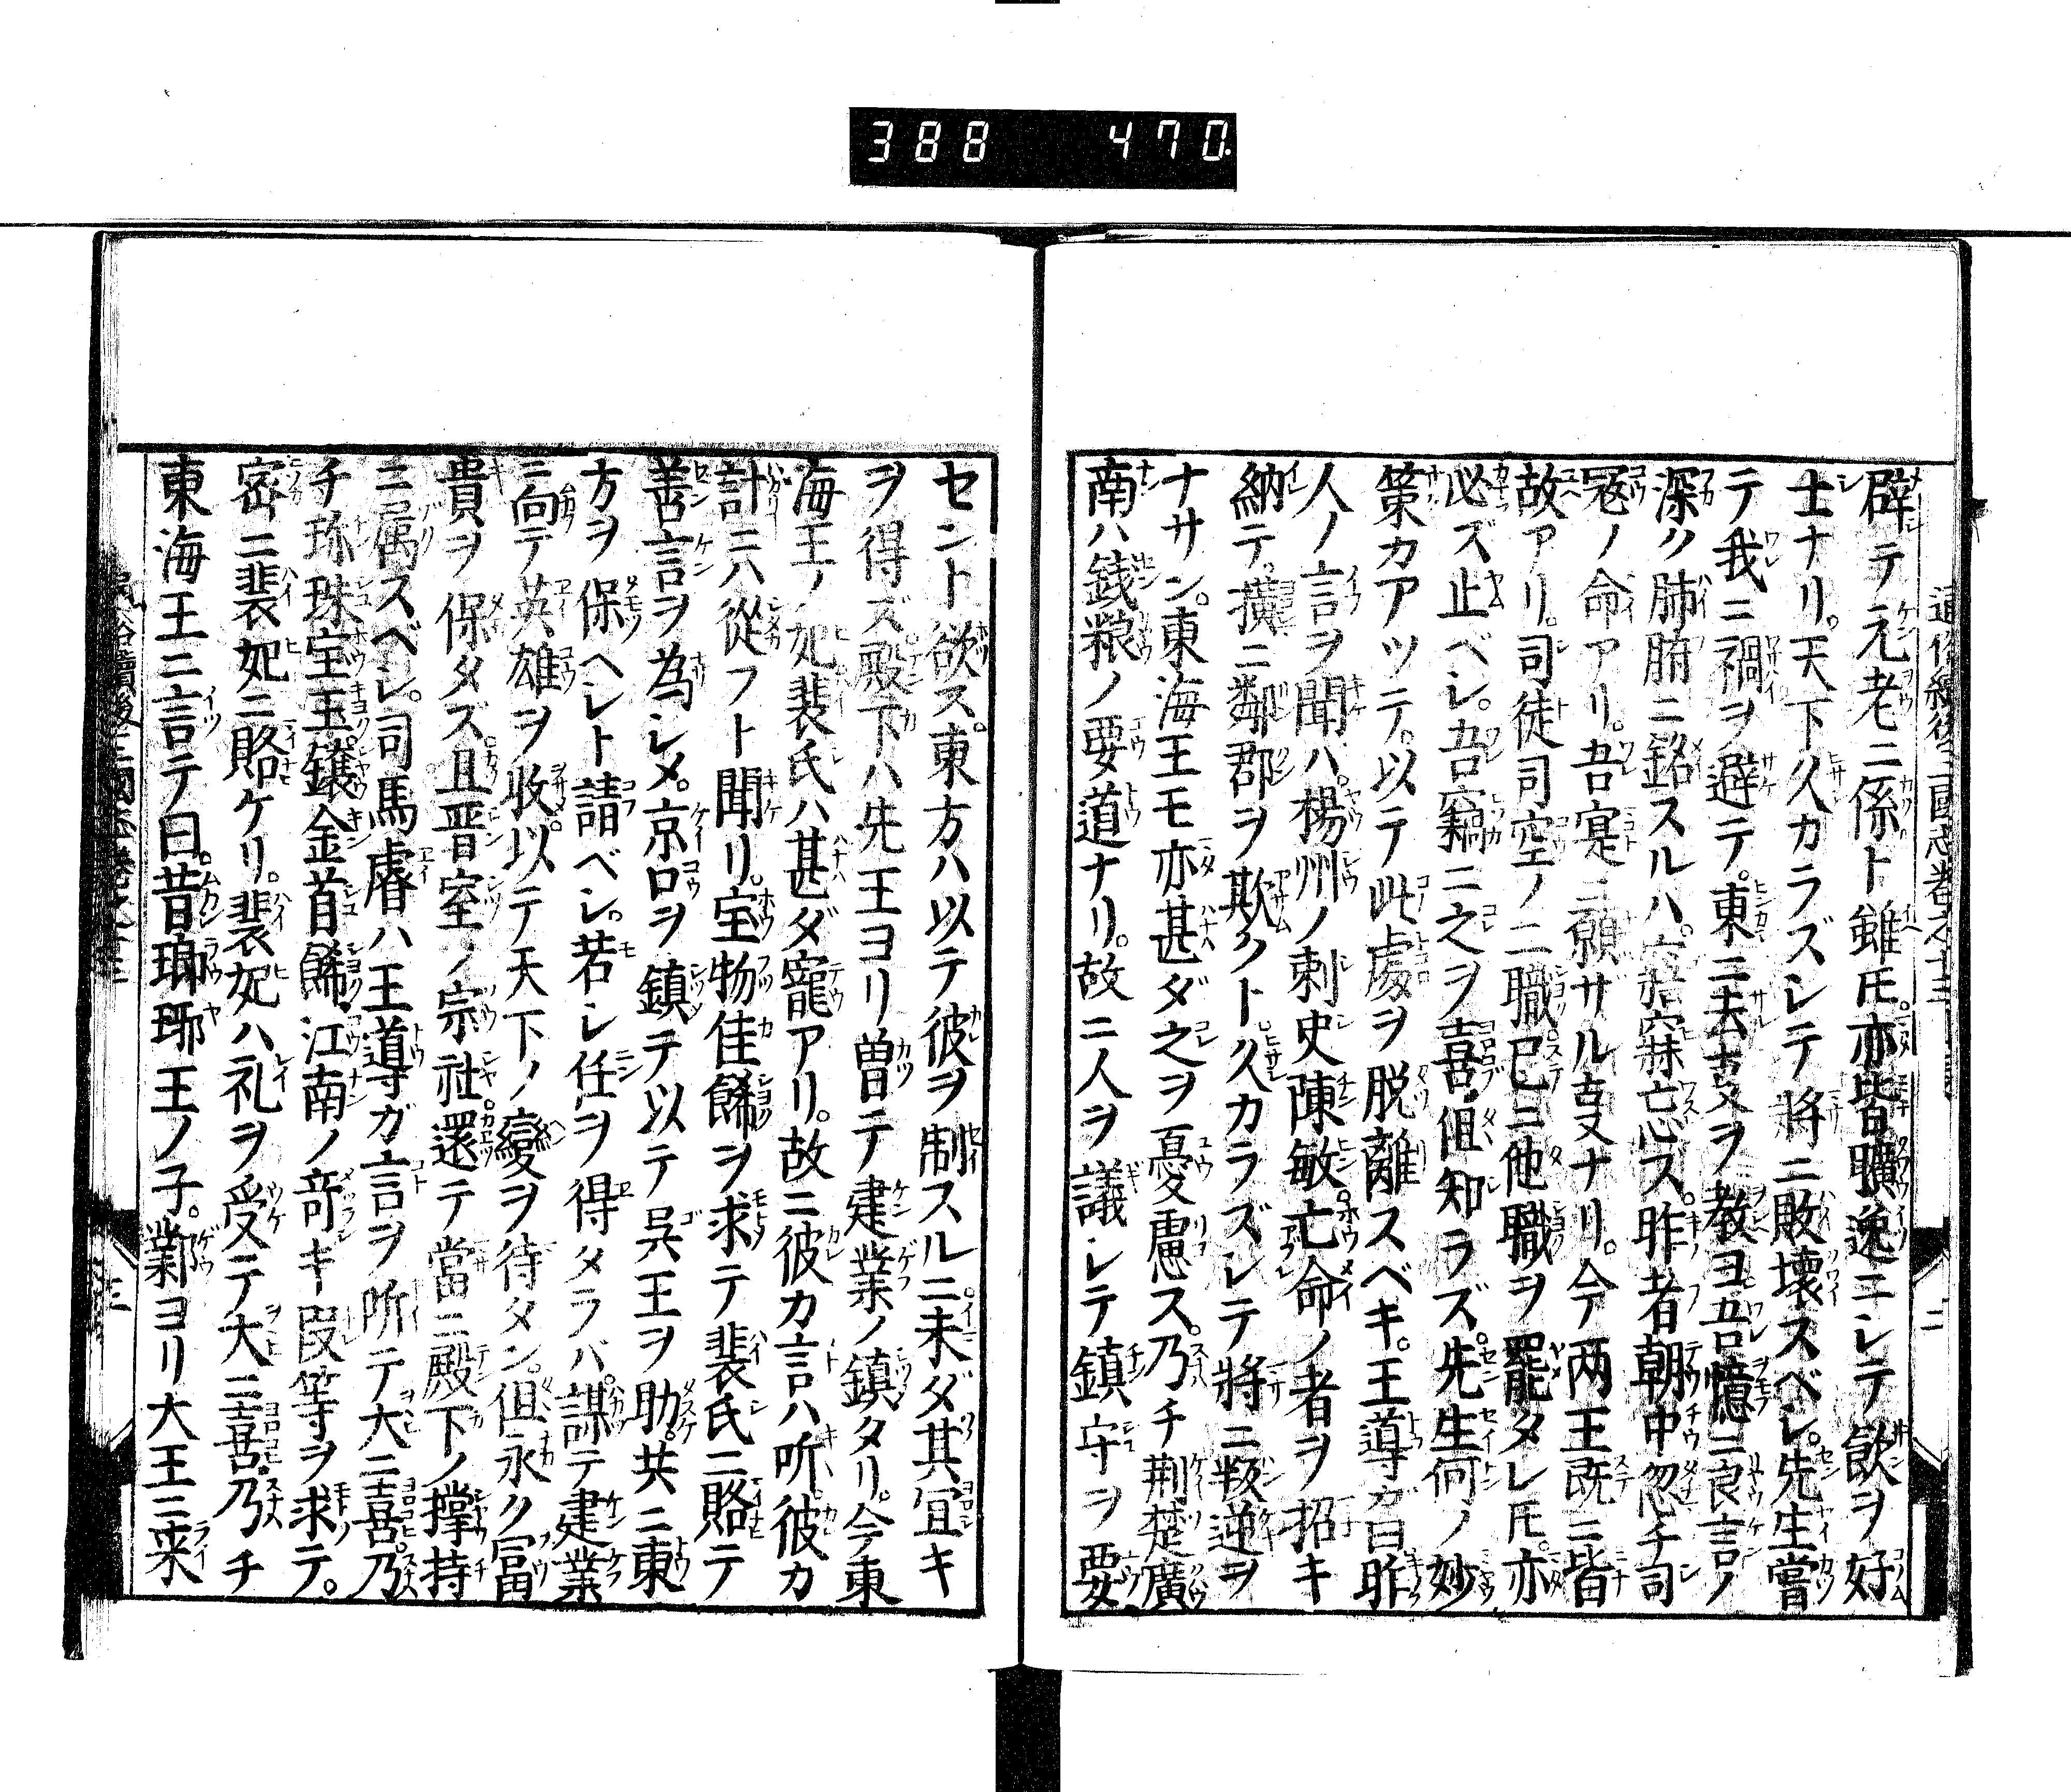 388 470
通俗續後三國志卷之十三
二
辟テ元老ニ係ト雖𪜈。亦皆曠逸ニシテ飲ヲ好
士ナリ。天下久カラズシテ將ニ敗壊スベシ。先生嘗
テ我ニ禍ヲ避テ。東ニ去叓ヲ教ヨ。吾憶ニ良言ノ
深ク肺腑ニ銘スルハ。寤寐忘ズ。昨者朝中忽チ司
冦ノ命アリ。吾寔ニ願サル叓ナリ。今両王既ニ皆
故アリ。司徒司空ノ二職已ニ他職ヲ罷タレ𪜈。亦
必ズ止ベシ。吾竊ニ之ヲ喜。但知ラズ。先生何ノ妙
策カアツテ。以テ此處ヲ脱離スベキ。王導ガ曰昨
人ノ言ヲ聞ハ。楊州ノ刺史陳敏。亡命ノ者ヲ招キ
納テ。擴ニ鄰郡ヲ欺クト。久カラズシテ將ニ叛逆ヲ
ナサン。東海王モ亦甚ダ之ヲ憂慮ス。乃チ荆楚廣
南ハ銭粮ノ要道ナリ。故ニ人ヲ議シテ鎮守ヲ要
セント欲ス。東方ハ以テ彼ヲ制スルニ。未ダ其宜キ
ヲ得ズ。殿下ハ先王ヨリ曽テ建業ノ鎮タリ。今東
海王ノ妃裴氏ハ甚ダ寵アリ。故ニ彼カ言ハ听。彼カ
計ニハ從フト聞リ。宝物佳餙ヲ求テ裴氏ニ賂テ
善言ヲ為シメ。京口ヲ鎮テ以テ呉王ヲ助。共ニ東
方ヲ保ヘシト請ベシ。若シ任ヲ得タラバ。謀テ建業
ニ向テ英雄ヲ收。以テ天下ノ變ヲ待タン。但永ク冨
貴ヲ保タズ。且晋室ノ宗社。還テ當ニ殿下ノ撑持
ニ属スベシ。司馬睿ハ王導ガ言ヲ听テ大ニ喜。乃
チ珎珠宝玉。鑲金首餙。江南ノ竒キ叚等ヲ求テ。
密ニ裴妃ニ賂ケリ。裴妃ハ礼ヲ受テ大ニ喜。乃チ
東海王ニ言テ曰。昔瑯琊王ノ子。鄴ヨリ大王ニ来
三